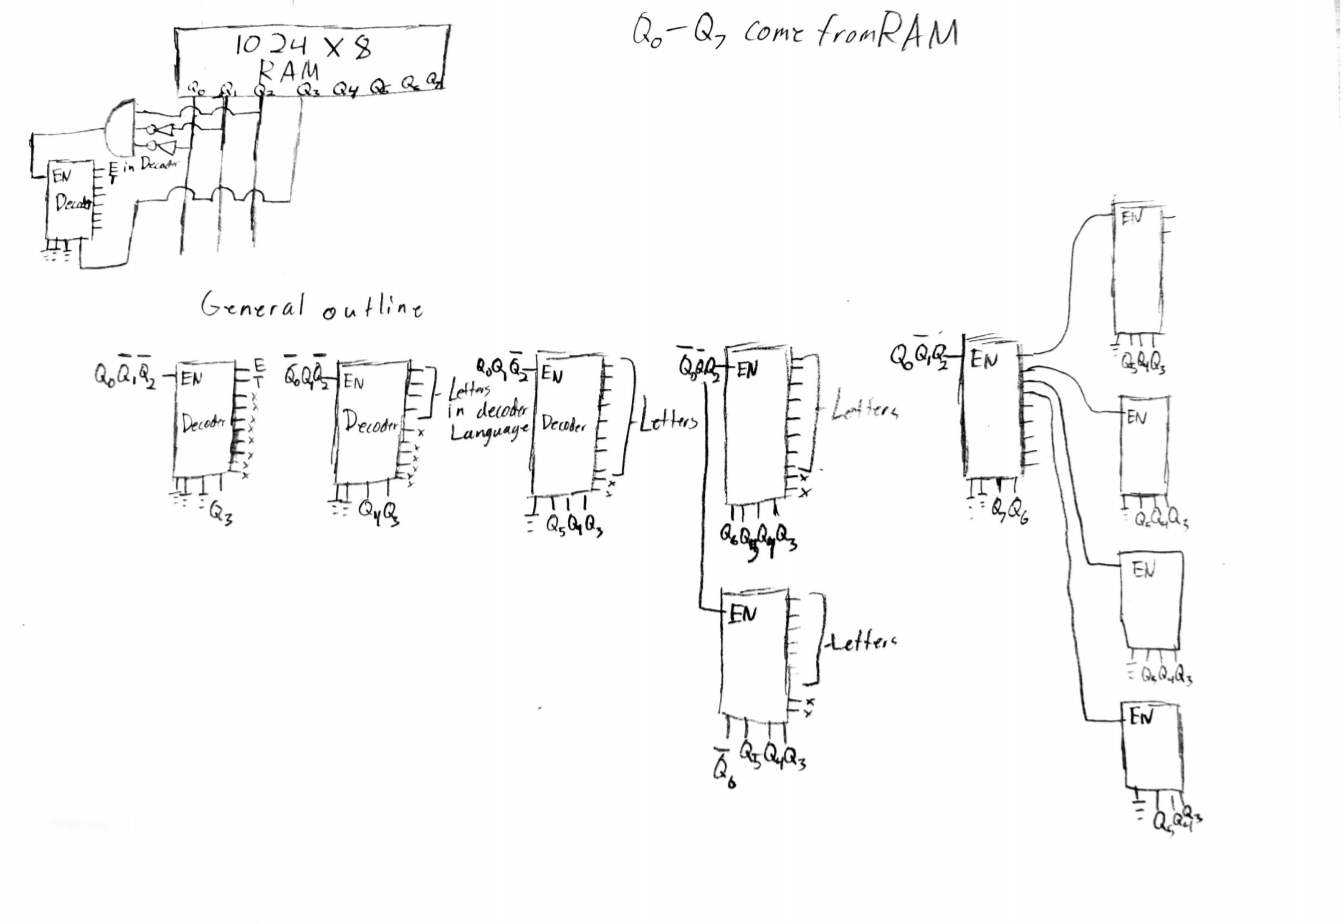 Q₀-Q₇ come from RAM
1024 X 8
RAM
Q₀ Q₁ Q₂ Q₃ Q₄ Q₅ Q₆ Q₇
E in Decoder
T
EN
Decoder
General outline
Q₀Q̅₁Q̅₂
EN
Decoder
E
T
x
x
x
x
x
x
x
x
Q₃
Q̅₀Q₁Q̅₂
EN
Decoder
Letters
in decoder
Language
x
x
x
x
x
Q₄Q₃
Q₀Q₁Q̅₂
EN
Decoder
Letters
x
x
Q₅Q₄Q₃
Q̅₀Q̅₁Q₂
EN
Letters
x
x
Q₆Q₅Q₄Q₃
EN
Letters
x
x
Q̅₆ Q₅ Q₄Q₃
Q₀Q̅₁Q₂
EN
Q₇Q₆
EN
Q₅Q₄Q₃
EN
Q₅Q₄Q₃
EN
Q₅Q₄Q₃
EN
Q₅Q₄Q₃